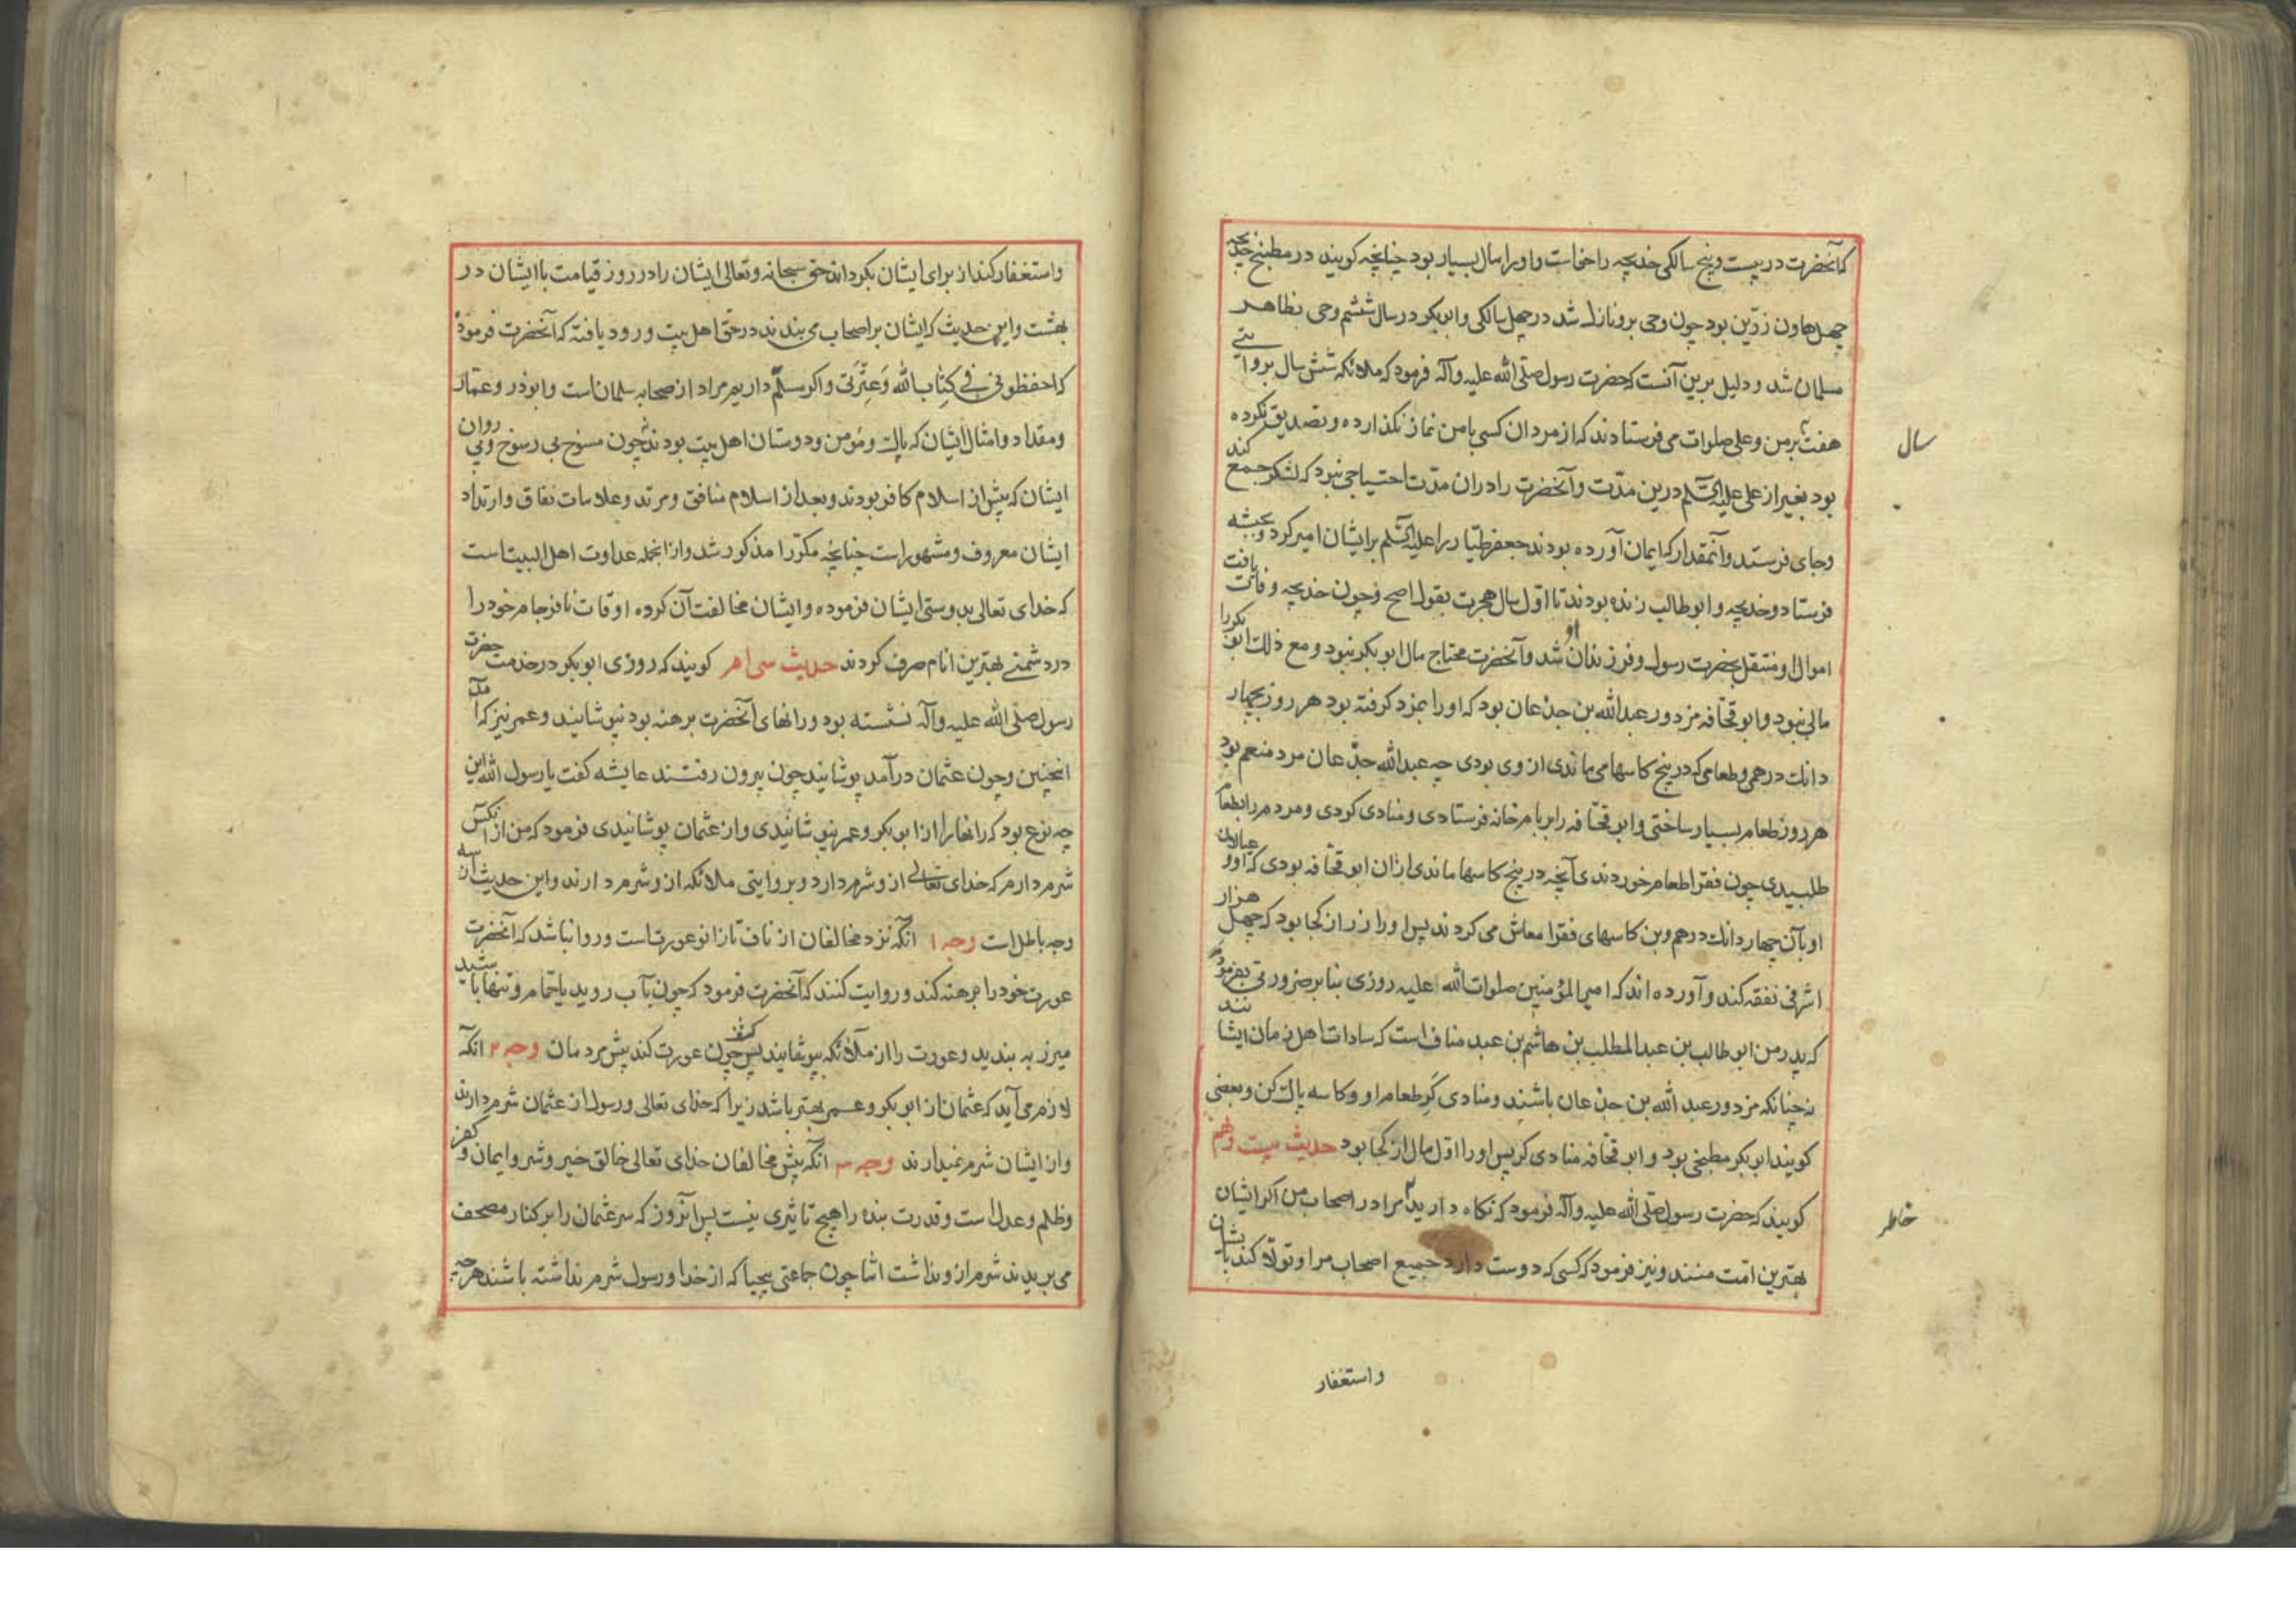 که آنحضرت در بیست و پنج سالکی خدیجه را خواست و او را مال بسیار بود چنانچه کویند در مطبخ خدیجه
چهل هاون زرّین بود چون وحی برو نازل شد در چهل سالکی و ابوبکر در سال ششم وحی بظاهر
مسلمان شد و دلیل برین آنست که حضرت رسول صلّی الله علیه وآله فرمود که ملائکه شش سال بروایتی
هفت بر من و علی صلوات می فرستادند که از مردان کسی با من نماز نکذارده و تصدیق نکرده
سال
بود بغیر از علی علیه السّلم درین مدّت و آنحضرت را در ان مدّت احتیاجی نبود که لشکر جمع کند
و جای فرستد و آنمقدار که ایمان آورده بودند جعفر طیّار را علیه السّلم بر ایشان امیر کرد و بحبشه
فرستاد و خدیجه و ابوطالب زنده بودند تا اوّل سال هجرت بقول اصح و چون خدیجه وفات یافت
اموال او منتقل بحضرت رسول و فرزندان او شد و آنحضرت محتاج مال ابوبکر نبود و مع ذلک ابوبکر را
مالی نبود و ابو قحافه مزدور عبدالله بن جذعان بود که او را بمزد کرفته بود هر روز بچهار
دانک درهمی و طعامی که در پنج کاسها می ماندی از وی بودی چه عبدالله جذعان مرد منعم بود
هر روز طعام بسیار ساختی و ابو قحّافه را بر بام خانه فرستادی و منادی کردی و مردم را بطعام
طلبیدی چون فقرا طعام خوردندی آنچه در پنج کاسها ماندی ازان ابو قحّافه بودی که او و عیالان
او بآن چهار دانک درهم وبن کاسهای فقرا معاش می کردند پس او را زر از کجا بود که چهل هزار
اشرفی نفقه کند و آورده اند که امیرالمؤمنین صلوات الله علیه روزی بنا بر ضرورتی بفرمود
که پدر من ابوطالب بن عبدالمطلب بن هاشم بن عبد مناف است که سادات اهل زمان ایشانند
نه چنانکه مزدور عبد الله بن جذعان باشند و منادی کر طعام او و کاسه پاک کن و بعضی
کویند ابوبکر مطبخی بود و ابو قحّافه منادی کر پس او را اوّل مال از کجا بود حدیث بیست و نهم
کویند که حضرت رسول صلّی الله علیه وآله فرمود که نکاه دارید مرا در اصحاب من اکر ایشان
خاطر
بهترین امّت منند و نیز فرمود که کسی که دوست دارد جمیع اصحاب مرا و تولّا کند بایشان
واستغفار
واستغفار کند از برای ایشان بکرداند حق سبحانه و تعالی ایشان را در روز قیامت با ایشان در
بهشت و این حدیث که ایشان بر اصحاب می بندند در حق اهل بیت ورود یافته که آنحضرت فرموده
که احفظونی فی کِتٰاب الله وَعِتْرَتی و اکر سلّم داریم مراد از صحابه سلمان است و ابوذر و عمّار
و مقداد و امثال ایشان که پاک و مؤمن و دوستان اهل بیت بودند نه چون مسوخ بی رسوخ و پی روان
ایشان که پیش از اسلام کافر بودند و بعد از اسلام منافق و مرتد و علامات نفاق و ارتداد
ایشان معروف و مشهور است چنانچه مکرّرا مذکور شد و از انجمله عداوت اهل البیت است
که خدای تعالی بدوستی ایشان فرموده و ایشان مخالفت آن کرده اوقات نافرجام خود را
در دشمنی بهترین انام صرف کردند حدیث سی ام کویند که روزی ابوبکر در خدمت حضرت
رسول صلّی الله علیه وآله نشسته بود و رانهای آنحضرت برهنه بود نپوشانید و عمر نیز که آمد
انچنین و چون عثمان در آمد پوشانید چون بیرون رفتند عایشه کفت یا رسول الله این
چه نوع بود که رانها را از ابوبکر و عمر نپوشانیدی و از عثمان پوشانیدی فرمود که من از انکس
شرم دارم که خدای تعالی از و شرم دارد و بروایتی ملائکه از و شرم دارند و این حدیث از سه
وجه باطل است وجه ۱ انکه نزد مخالفان از ناف تا زانو عورت است و روا نباشد که آنحضرت
عورت خود را برهنه کند و روایت کنند که آنحضرت فرمود که چون بآب روید یا حمام و تنها باشید
میزر به بندید و عورت را از ملائکه بپوشانید پس چون کشف عورت کند پیش مردمان وجه ۲ انکه
لازم می آید که عثمان از ابوبکر و عمر بهتر باشد زیرا که خدای تعالی و رسول از عثمان شرم دارند
و از ایشان شرم نمیدارند وجه ۳ انکه پیش مخالفان خدای تعالی خالق خیر و شر و ایمان و کفر
و ظلم و عدل است و قدرت بنده را هیچ تاثیری نیست پس آنروز که سر عثمان را بر کنار مصحف
می بریدند شرم از و نداشت امّا چون جماعتی بیحیا که از خدا و رسول شرم نداشته باشند هر چه